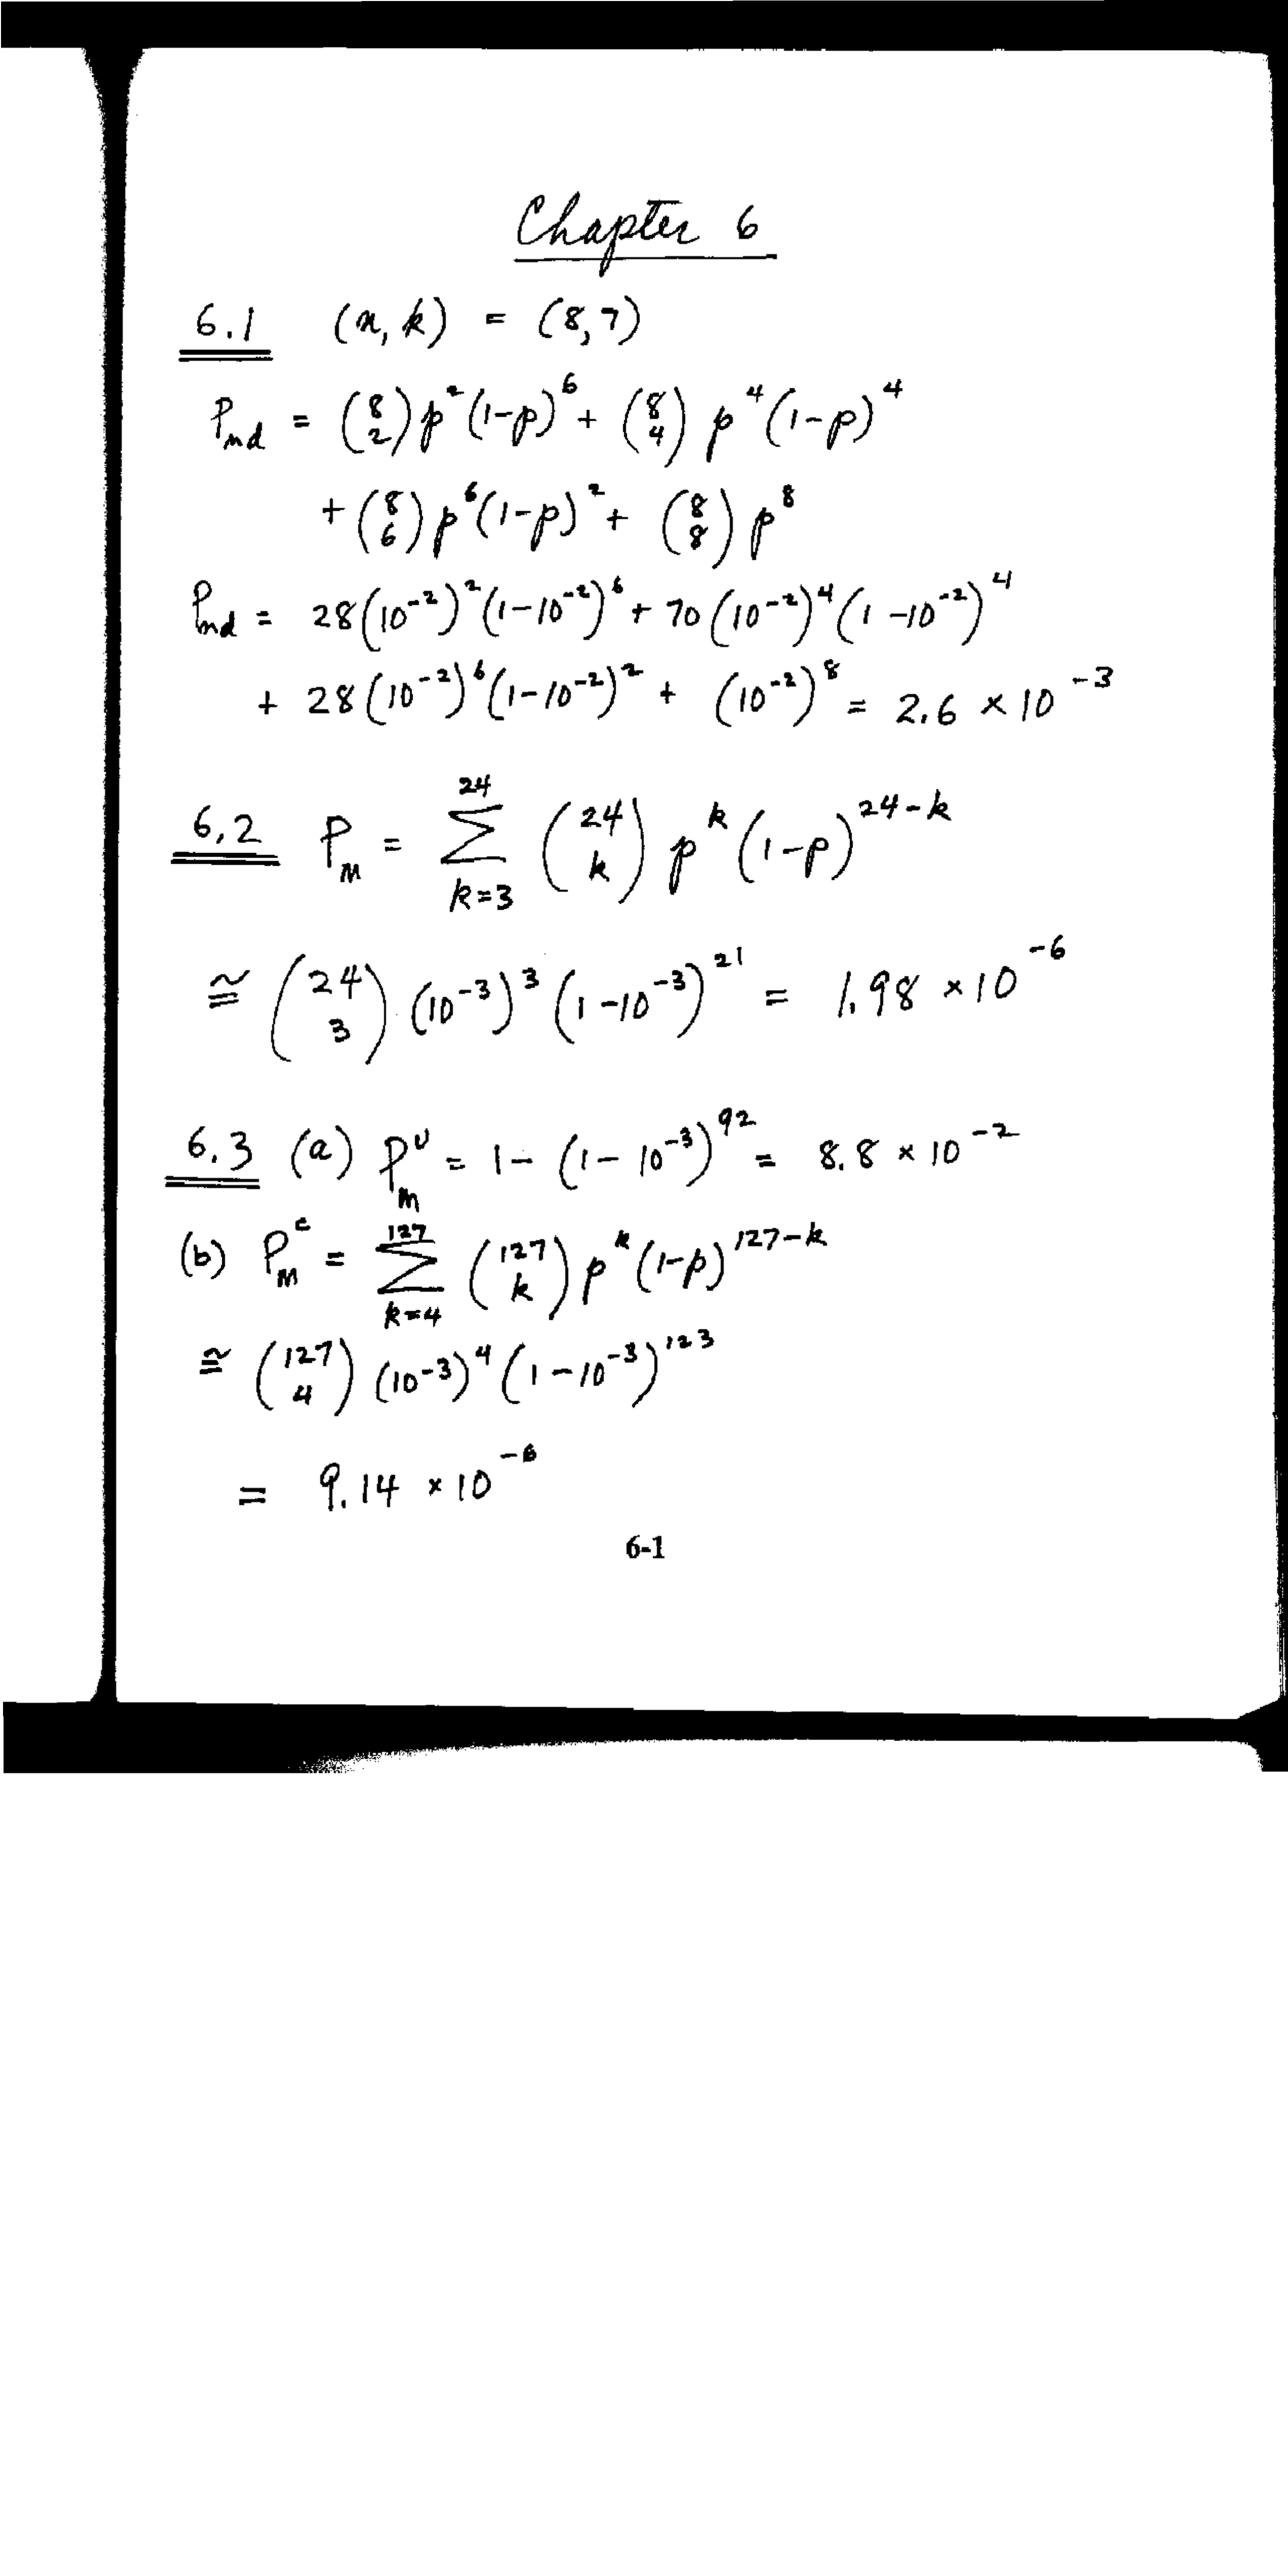 Chapter 6
6.1 (n, k) = (8, 7)
P_nd = (8 2) p^2 (1-p)^6 + (8 4) p^4 (1-p)^4
+ (8 6) p^6 (1-p)^2 + (8 8) p^8
P_nd = 28(10^-2)^2 (1-10^-2)^6 + 70(10^-2)^4 (1-10^-2)^4
+ 28(10^-2)^6 (1-10^-2)^2 + (10^-2)^8 = 2.6 × 10^-3
6.2 P_M = Σ_{k=3}^{24} (24 k) p^k (1-p)^{24-k}
≅ (24 3) (10^-3)^3 (1-10^-3)^21 = 1.98 × 10^-6
6.3 (a) P_M^U = 1 - (1 - 10^-3)^92 = 8.8 × 10^-2
(b) P_M^c = Σ_{k=4}^{127} (127 k) p^k (1-p)^{127-k}
≅ (127 4) (10^-3)^4 (1-10^-3)^123
= 9.14 × 10^-6
6-1